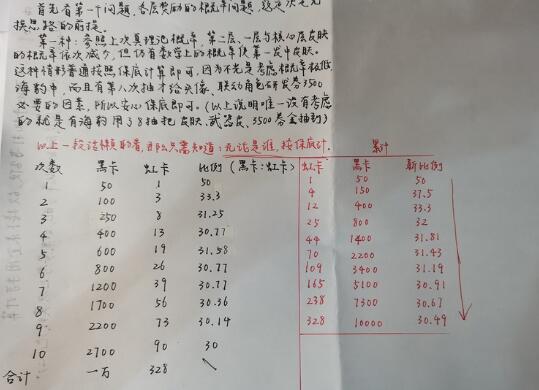 首先有第一个问题，各层奖励的概率问题，这是决定兑
换思路的前提。
第一种：参照上次真理池概率，第一层、一层与核心层皮肤
的概率依次减少，但仍有数学上的概率使第一发中皮肤。
这种情形普通按照保底计算即可，因为不光是考虑概率极低
海豹中，而且有第八次抽才给头像、联动角色研发卷3500
必要的因素，所以安心保底即可。(以上说明唯一没有考虑
的就是有海豹用了8抽把皮肤、武器皮、3500卷全抽到)
以上一段话懒的看，那么只需知道：无论是谁，按保底计．
累计
次数 黑卡 虹卡 比例 (黑卡:虹卡) 虹卡 黑卡 新比例
1 50 1 50 1 50 50
2 100 3 33.3 4 150 37.5
3 250 8 31.25 12 400 33.3
4 400 13 30.77 25 800 32
5 600 19 31.58 44 1400 31.81
6 800 26 30.77 70 2200 31.43
7 1200 39 30.77 109 3400 31.19
8 1700 56 30.36 165 5100 30.91
9 2200 73 30.14 238 7300 30.67
10 2700 90 30 328 10000 30.49
合计 一万 328